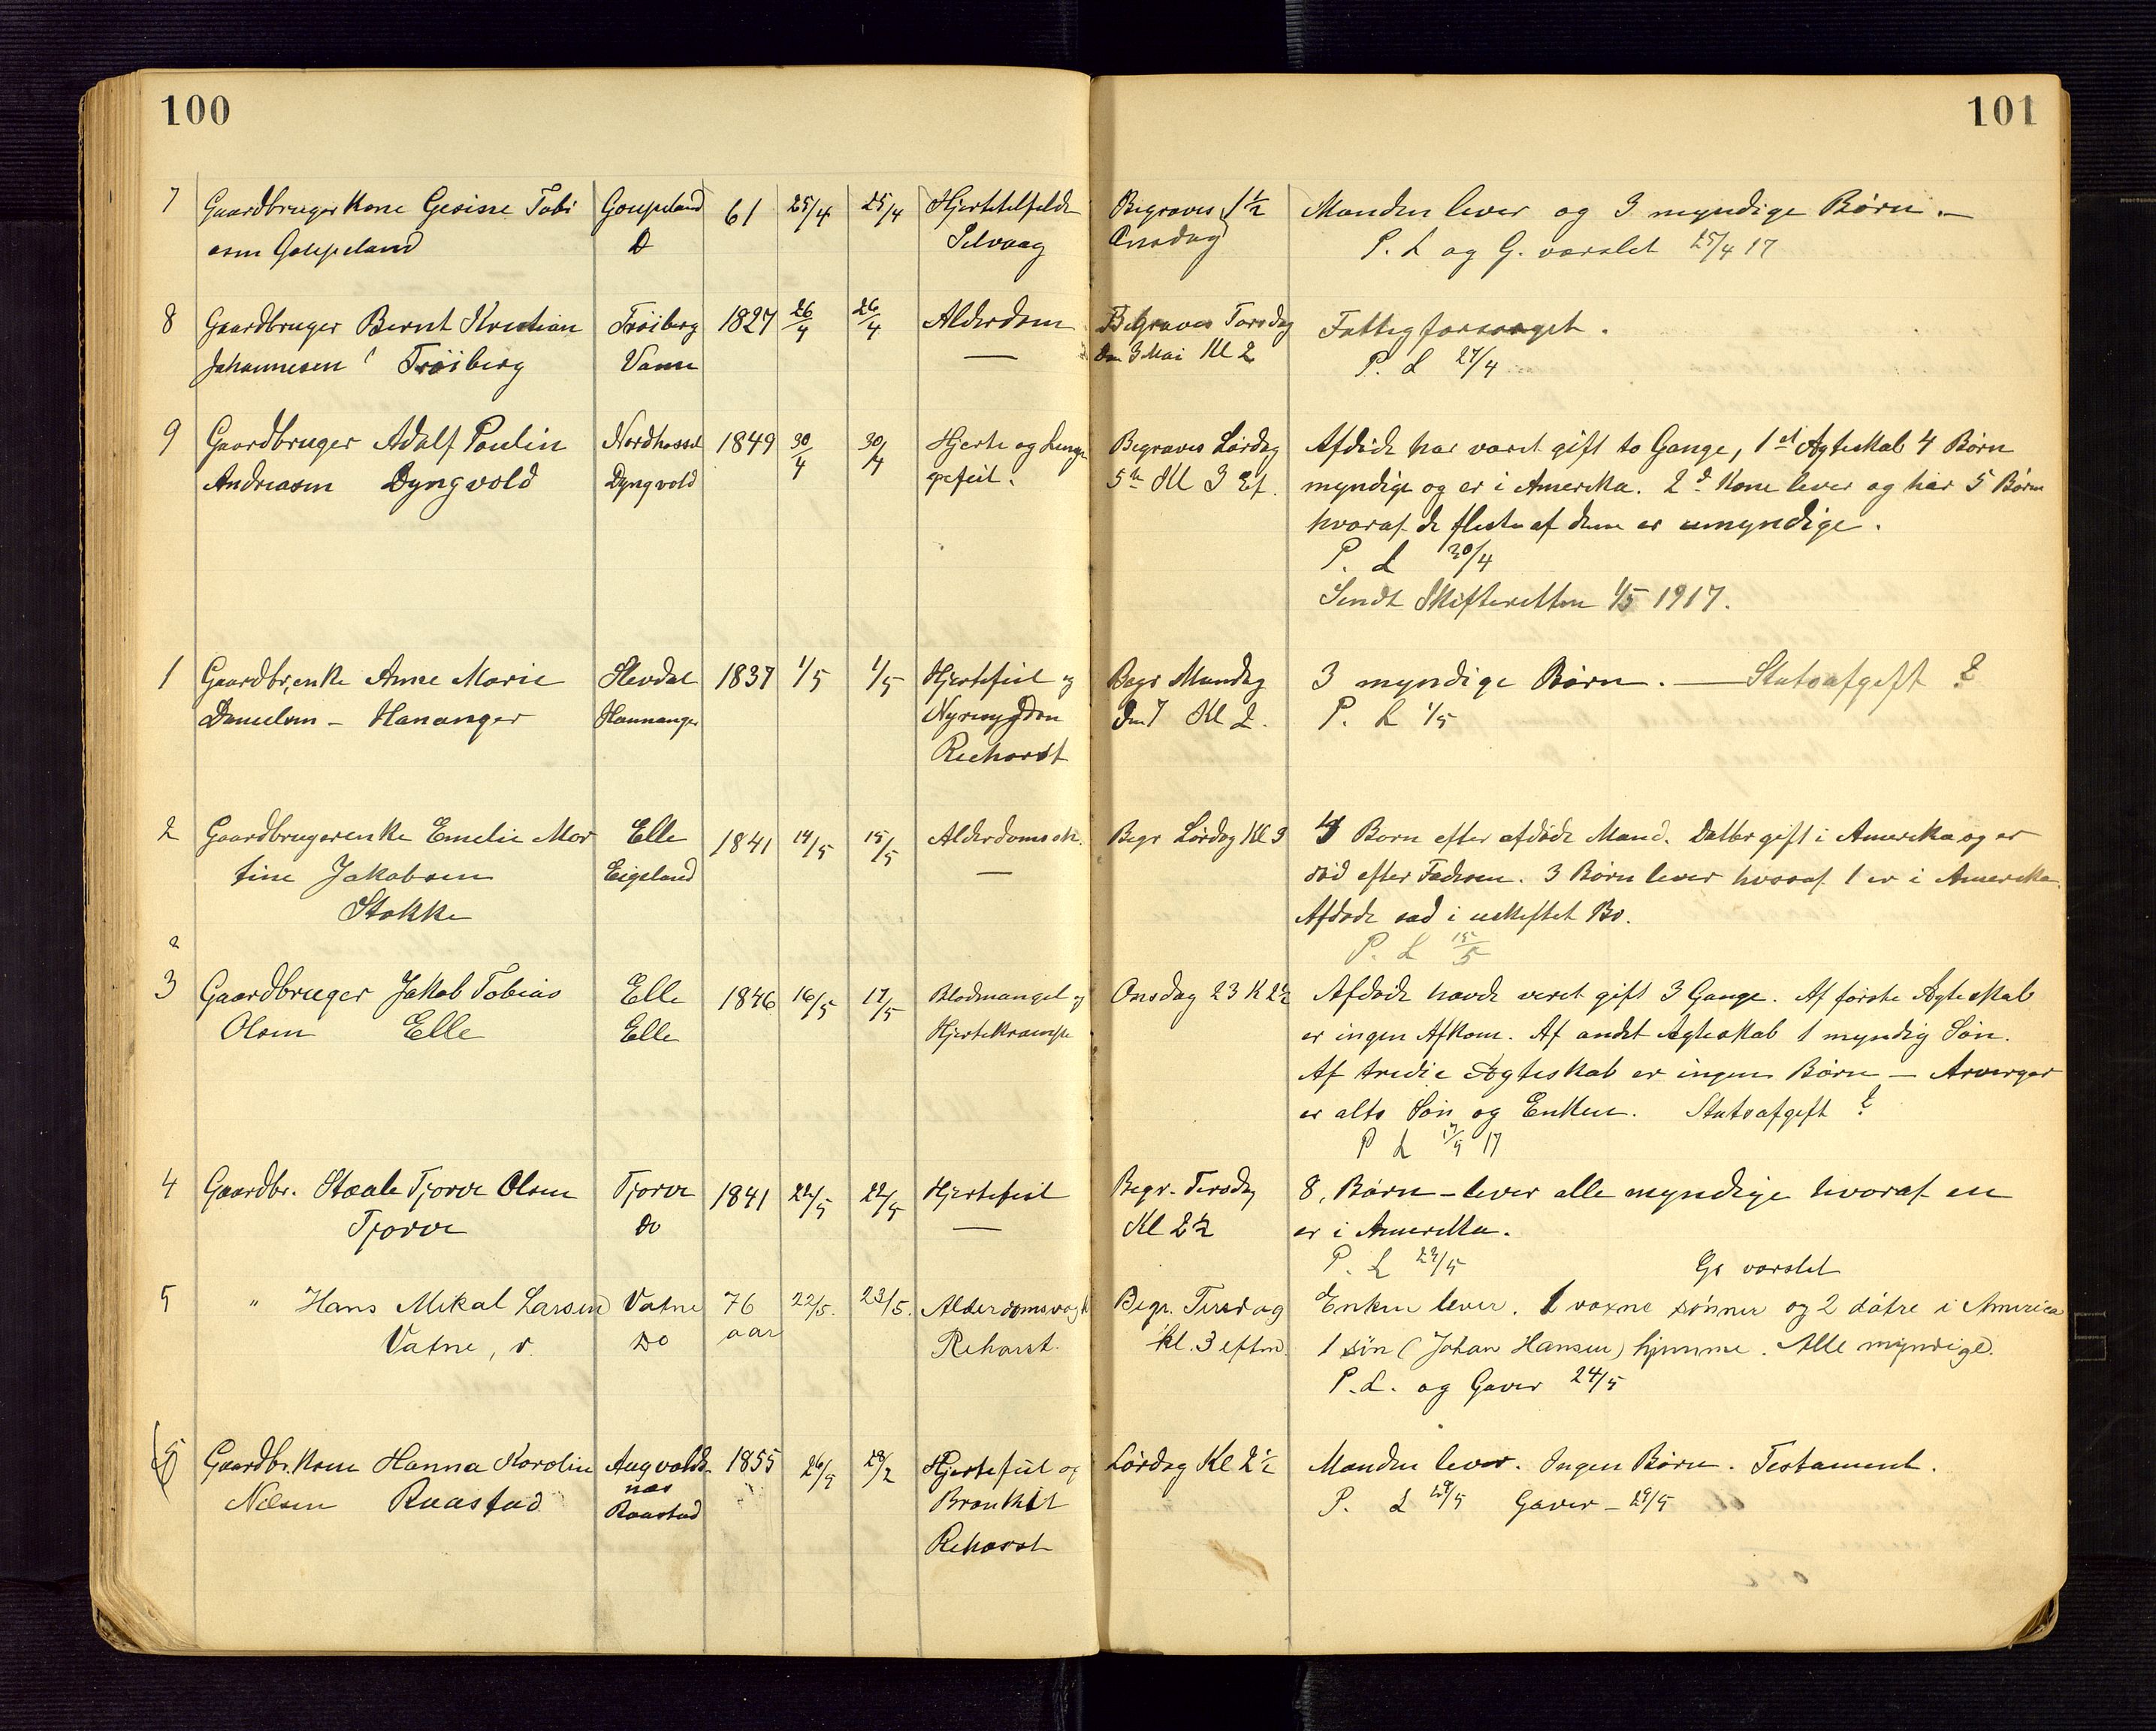 100
101
7 Gaardbruger Kone Gesine Tobi Goupeland 61 25/4 25/4 Begraves 1 1/2 Manden lever og 3 myndige Børn. —
asen Goupeland D Selvaag Onsdag P. L og G. varslet 25/4 17
8 Gaardbruger Bernt Kristian Trøiberg 1827 26/4 26/4 Alderdom Begraves Torsdag Fattigforsorget.
Johannesen Trøiberg Vanse — den 3 Mai Kl 2 P. L 27/4
9 Gaardbruger Adolf Poulin Nordhassel 1849 30/4 30/4 Hjerte og Lun Begraves Lørdag Afdøde har været gift to Gange, 1st Ægteskab 4 Børn
Andreasen Dyngvold Dyngvold gefeil. 5te Kl 3 Ef. myndige og er i Amerika. 2d Kone lever og har 5 Børn
hvoraf de fleste af dem er umyndige.
P. L 30/4
Sendt Skifteretten 1/5 1917.
1 Gaardbr, enke Anne Marie Slevdal 1837 1/5 1/5 Hjertefeil og Begr Mandag 3 myndige Børn. — Statsafgift ?
Danielsen - Hananger Hannanger Nyresygdom den 7 Kl 2. P. L 1/5
Reehorst
2 Gaardbrugerenke Emelie Mar Elle 1841 14/5 15/5 Begr Lørdag Kl 3 4 Børn efter afdøde Mand. Datter gift i Amerika og er
tine Jakobsen Eigeland — død efter Faderen. 3 Børn lever hvoraf 1 er i Amerika.
Stokke Afdøde sad i uskiftet Bo.
2 P. L 15/5
3 Gaardbruger Jakob Tobias Elle 1846 16/5 17/5 Blodmangel og Onsdag 23 K 2 1/2 Afdøde havde veret gift 3 Gange. Af første Ægteskab
Olsen Elle Elle Hjertekrampe er ingen Afkom. Af andet Ægteskab 1 myndig Søn.
Af tredie Ægteskab er ingen Børn — Arvinger
er altsaa Søn og Enken. Statsafgift ?
P L 17/5 17
4 Gaardbr. Staale Tjørve Olsen Tjørve 1841 22/5 22/5 Hjertefeil Begr. Tirsdag 8, Børn - lever alle myndige hvoraf en
Tjørve do — Kl 2 1/2 er i Amerika.
P. L 22/5 Gs varslet
5 " Hans Mikal Larsen Vatne 76 22/5. 23/5. Begr. Tirsdag Enken lever. 1 voxne sønner og 2 døtre i America
Vatne, v. Do aar Rehorst. kl. 3 eftm. 1 søn (Johan Hansen) hjemme. Alle myndige.
P. L. og Gaver 24/5
6 Gaardbr. Kone Hanna Karolin Augvolds 1855 26/5 Hjertefeil og Lørdag Kl 2 1/2 Manden lever. Ingen Børn. Testament.
Nilsen Raastad næs Bronkit P. L 29/5 Gaver - 29/5
Raastad Rehorst